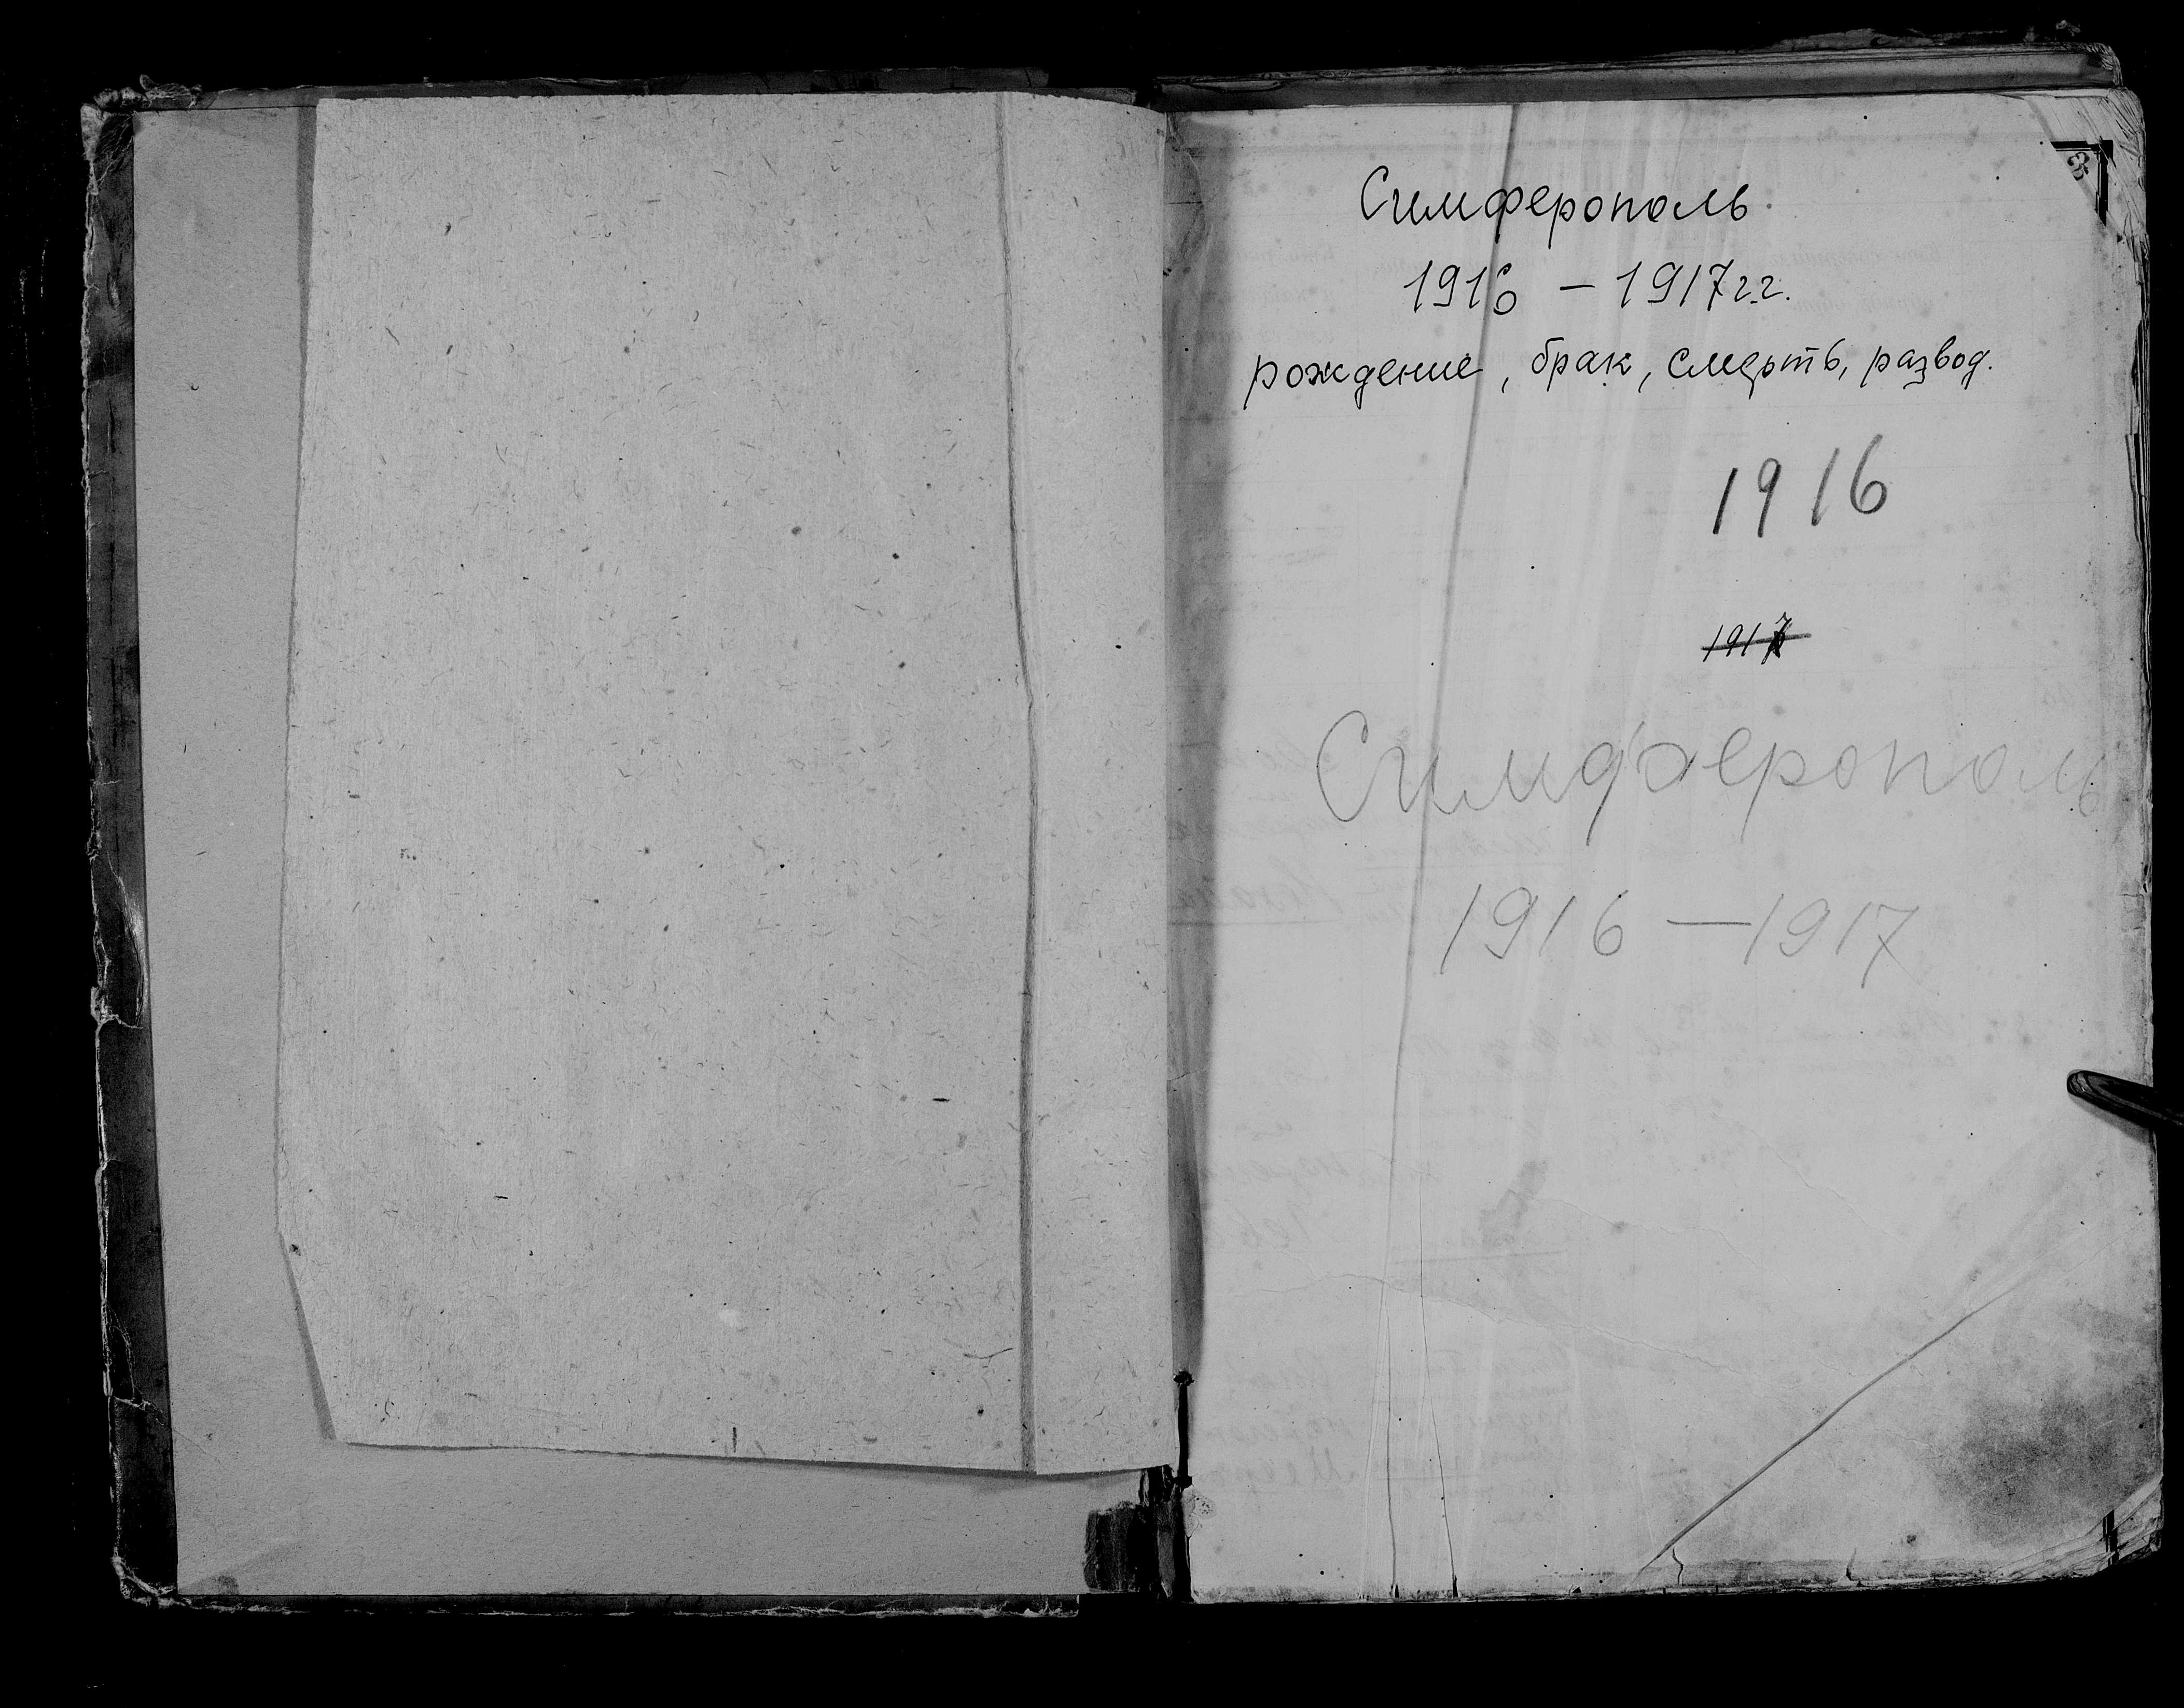 Симферополь
1916 – 1917 г.г.
рождение, брак, смерть, развод.
1916
1917
Симферополь
1916 – 1917